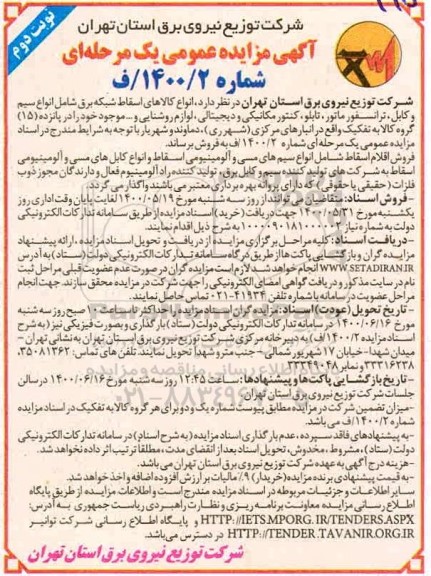 نوبت دوم
شرکت توزیع نیروی برق استان تهران
آگهی مزایده عمومی یک مرحله‌ای
شماره ۱۴۰۰/۲/ف
شرکت توزیع نیروی برق استان تهران در نظر دارد، انواع کالاهای اسقاط شبکه برق شامل انواع سیم
و کابل، ترانسفور ماتور، تابلو، کنتور مکانیکی و دیجیتالی، لوازم روشنایی و... موجود خود را در پانزده (۱۵)
گروه کالا به تفکیک واقع در انبارهای مرکزی (شهر ری)، دماوند و شهریار با توجه به شرایط مندرج در اسناد
مزایده عمومی یک مرحله‌ای شماره ۱۴۰۰/۲/ف به فروش برساند.
فروش اقلام اسقاط شامل انواع سیم های مسی و آلومینیومی اسقاط و انواع کابل های مسی و آلومینیومی
اسقاط به شرکت های تولید کننده سیم و کابل برق، تولید کننده راد آلومینیوم فعال و دارندگان مجوز ذوب
فلزات (حقیقی یا حقوقی) که دارای پروانه بهره برداری معتبر می باشند واگذار می گردد.
-فروش اسناد: متقاضیان می توانند از روز سه شنبه مورخ ۱۴۰۰/۰۵/۱۹ لغایت پایان وقت اداری روز
یکشنبه مورخ ۱۴۰۰/۰۵/۳۱ جهت دریافت (خرید) اسناد مزایده از طریق سامانه تدارکات الکترونیکی
دولت به شماره نیاز به شرح ذیل اقدام نمایند.
-دریافت اسناد: کلیه مراحل برگزاری مزایده از دریافت و تحویل اسناد مزایده، ارائه پیشنهاد
مزایده گران و بازگشایی پاکت ها از طریق درگاه سامانه تدارکات الکترونیکی دولت (ستاد) به آدرس
WWW.SETADIRAN.IR انجام خواهد شد. لازم است مزایده گران در صورت عدم عضویت قبلی مراحل ثبت
نام در سایت مذکور و دریافت گواهی امضای الکترونیکی را جهت شرکت در مزایده محقق سازند. جهت انجام
مراحل عضویت در سامانه با شماره تلفن ۴۱۹۳۴-۰۲۱ تماس حاصل نمایند.
-تاریخ تحویل (عودت) اسناد: مزایده گران اسناد مزایده را حداکثر تا ساعت ۱۰ صبح روز سه شنبه
مورخ ۱۴۰۰/۰۶/۱۶ در سامانه تدارکات الکترونیکی دولت (ستاد) بارگذاری و بصورت فیزیکی نیز (به شرح
اسناد مزایده ۱۴۰۰/۲/ف) به دبیرخانه مرکزی شرکت توزیع نیروی برق استان تهران به نشانی تهران -
میدان شهدا- خیابان ۱۷ شهریور شمالی- جنب مترو شهدا تحویل نمایند. تلفن های تماس: ۳۵۰۸۱۳۶۲،
۳۳۳۱۶۲۳۸ و نمابر ۳۳۳۴۴۰۴۸
-تاریخ بازگشایی پاکت ها و پیشنهادها: ساعت ۱۲:۴۵ روز سه شنبه مورخ ۱۴۰۰/۰۶/۱۶ در سالن
جلسات شرکت توزیع نیروی برق استان تهران
-میزان تضمین شرکت در مزایده مطابق پیوست شماره یک و دو برای هر گروه کالا به تفکیک در اسناد مزایده
شماره ۱۴۰۰/۲/ف می باشد.
-به پیشنهادهای فاقد سپرده، عدم بارگذاری اسناد مزایده (به شرح اسناد) در سامانه تدارکات الکترونیکی
دولت (ستاد)، مشروط، مخدوش، تحویل اسناد بعد از انقضای مدت، مطلقا ترتیب اثر داده نخواهد شد.
-هزینه درج آگهی به عهده شرکت توزیع نیروی برق استان تهران می باشد.
-به قیمت پیشنهادی برنده مزایده (خریدار) ۹٪ مالیات بر ارزش افزوده اضافه و اخذ خواهد شد.
سایر اطلاعات و جزئیات مربوطه در اسناد مزایده مندرج است و اطلاعات مزایده از طریق پایگاه
اطلاع رسانی مزایده معاونت برنامه ریزی و نظارت راهبردی ریاست جمهوری به آدرس:
HTTP://IETS.MPORG.IR/TENDERS.ASPX و پایگاه اطلاع رسانی شرکت توانیر
HTTP://TENDER.TAVANIR.ORG.IR در دسترس می باشد.
شرکت توزیع نیروی برق استان تهران